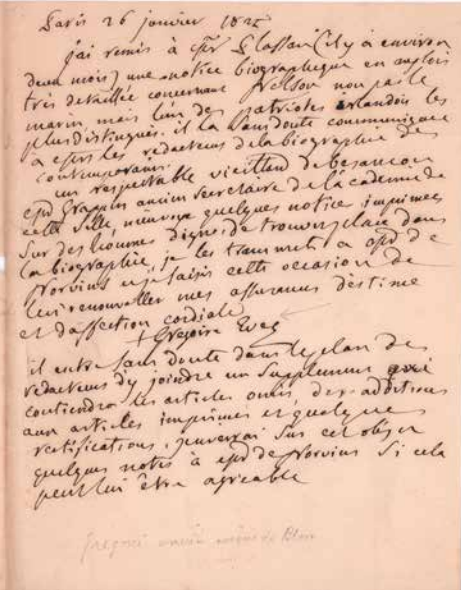 Paris 26 janvier 182
j'ai remis à Mr (il y a environ
deux mois) une notice biographique en anglois
très detaillée concernant Nelson non pas le
marin mais l'un des patriotes irlandois les
plus distingués. il l'a sans doute communiquée
a les redacteurs de la biographie des
contemporains.
un respectable vieillard de besancon
Mr Grappin ancien secretaire de l'academie de
cette ville, m'envoye quelques notice imprimées
sur des hommes dignes de trouver place dans
la biographie, je les transmets a Mr de
Norvins et je saisis cette occasion de
lui renouveller mes assurances d'estime
et d'affection cordiale
+ Gregoire Eveq
il entre sans doute dans le plan des
redacteurs d'y joindre un supplement qui
contiendra les articles omis, des additions
aux articles imprimés et quelques
rectifications. j'enverrai sur cet objet
quelques notes à Mr de Norvins si cela
peut lui être agreable
Gregoire ancien de Blois